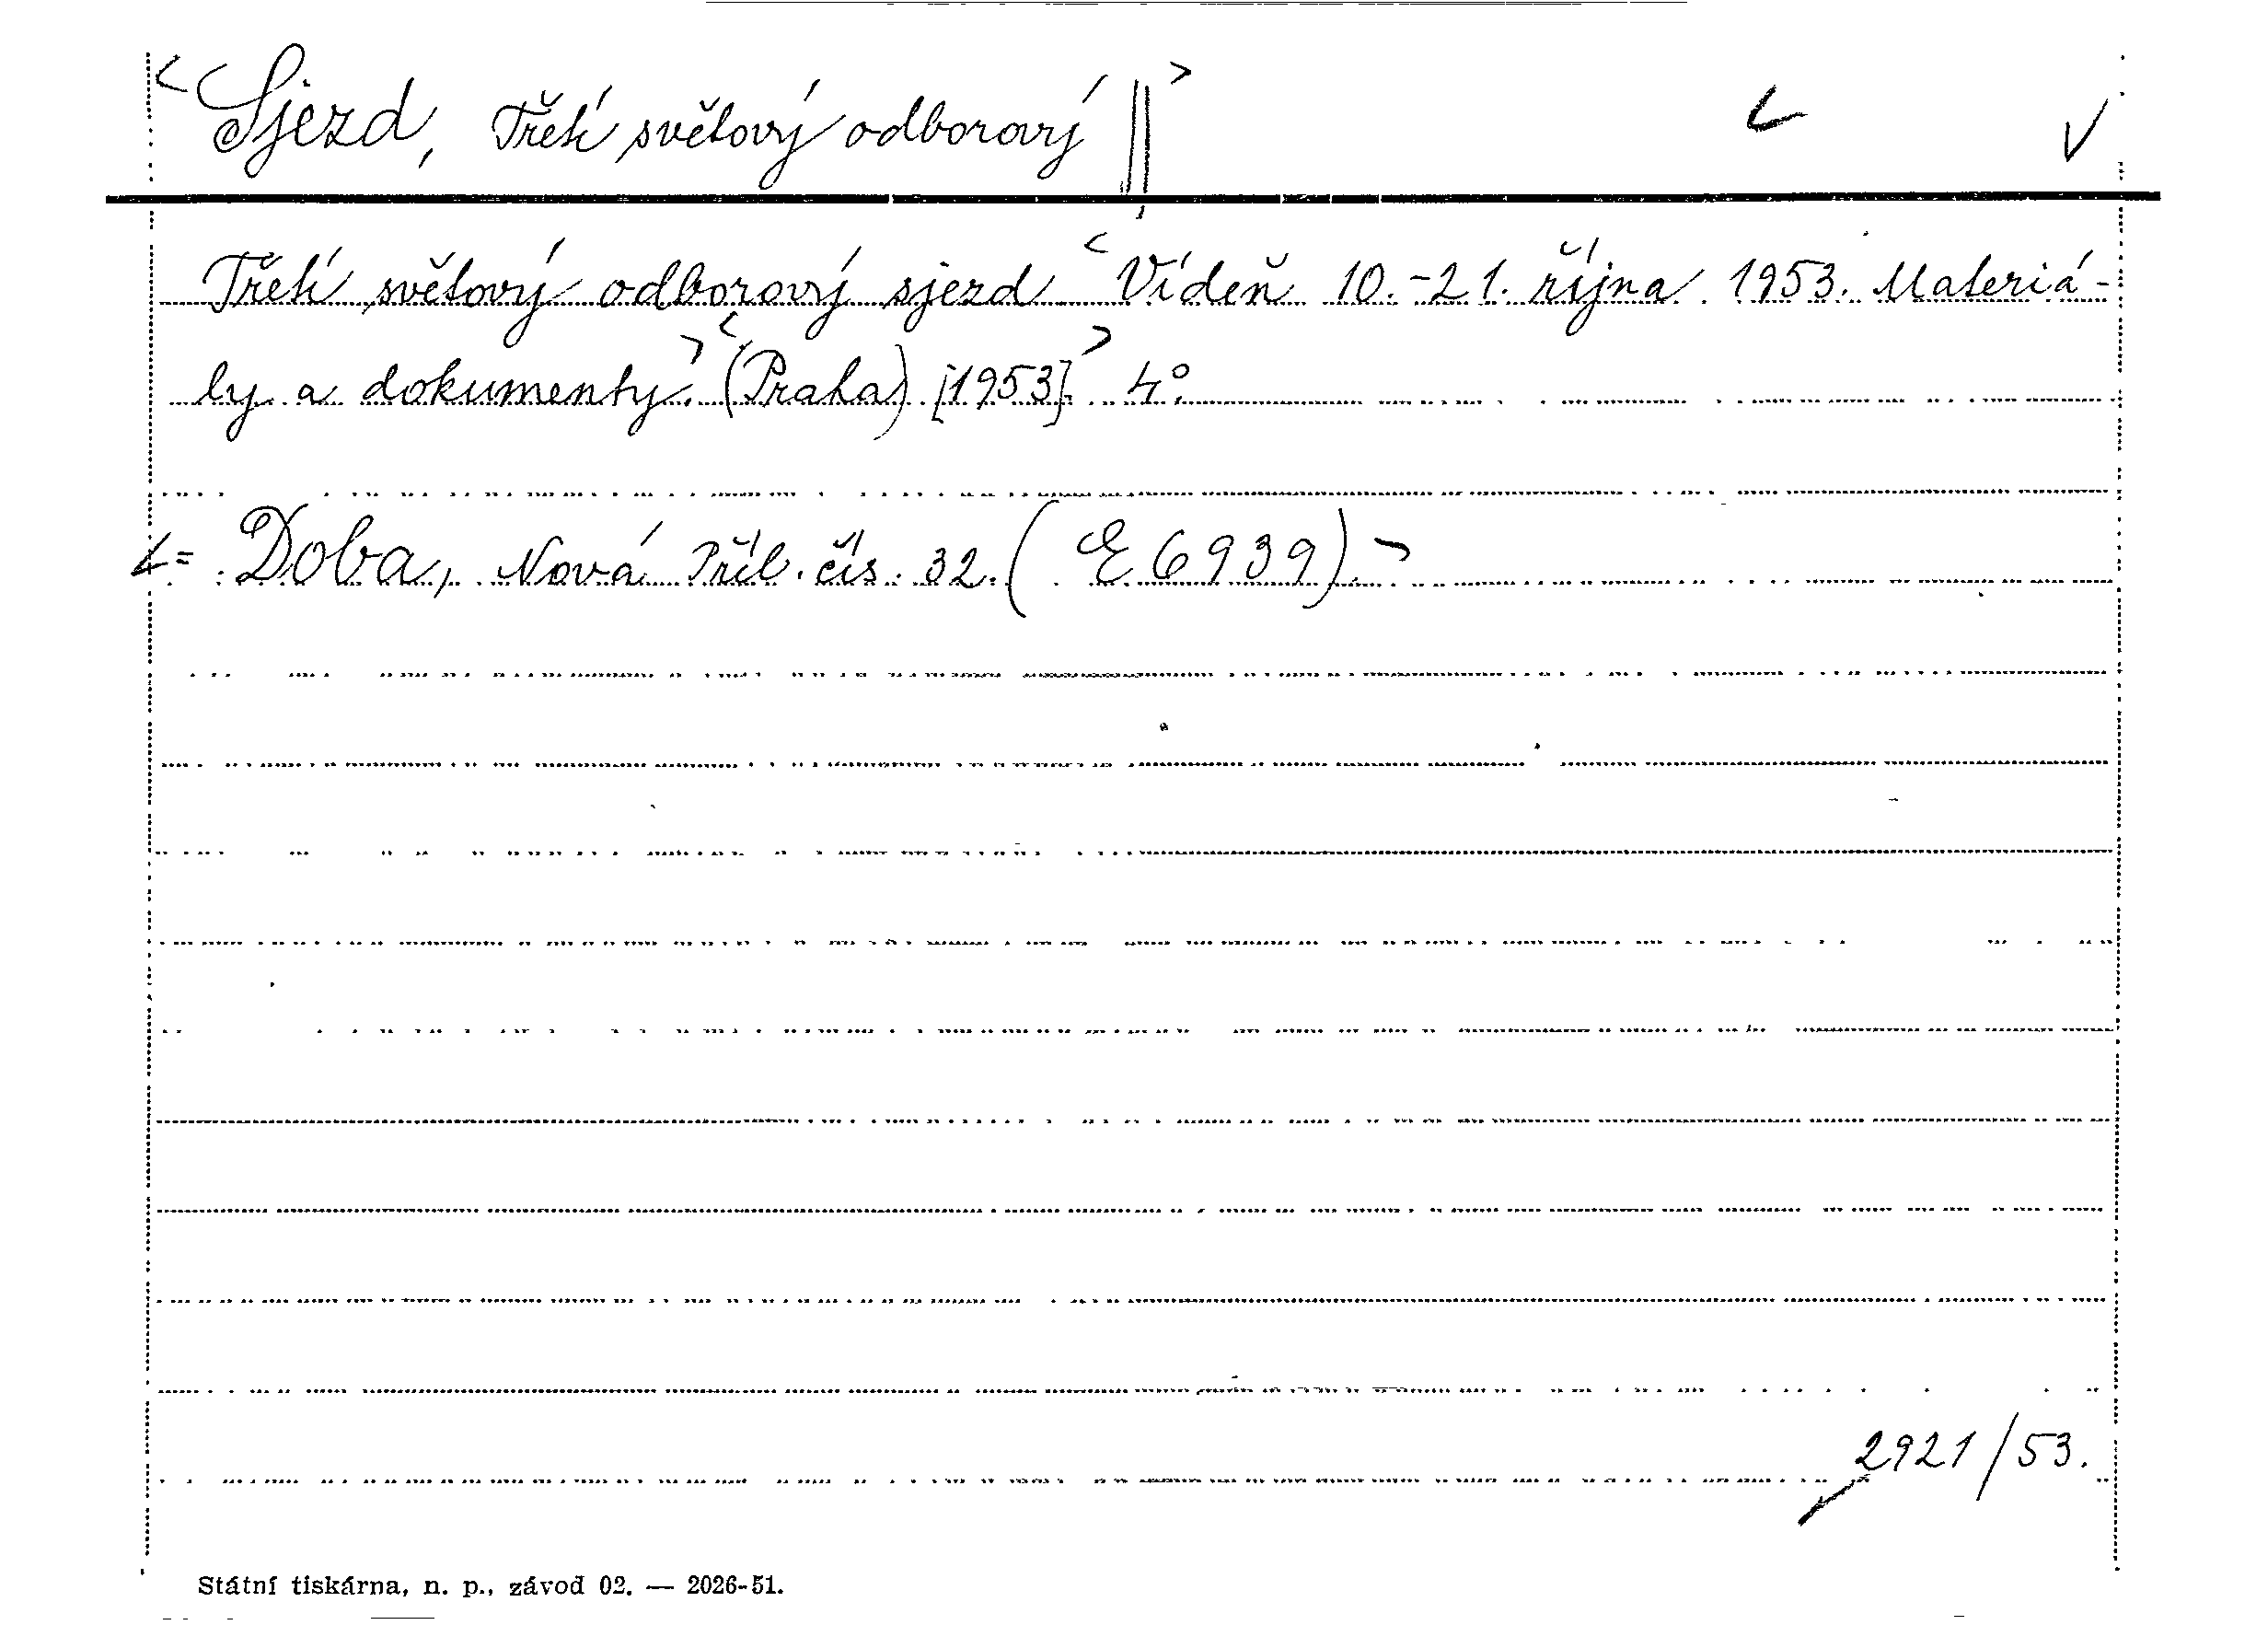 Sjezd, Třetí světový odborový
Třetí světový odborový sjezd Vídeň 10.-21. října 1953. Materiá-
ly a dokumenty. (Praha) [1953]. 4°.
= Doba, Nová Příl. čís. 32. (E 6939)
2921/53.
Státní tiskárna, n. p., závod 02. — 2026-51.